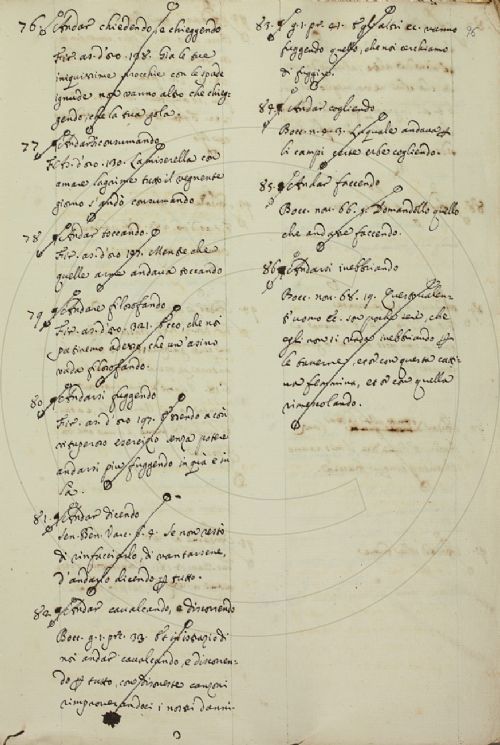 76. Andar chiedendo, e chieggendo
Fir. as. d'oro. 198. Già le tue
iniquissime sirocchie con le spade
ignude non vanno altro che chieg-
gendo, che la tua gola.
77. Andarsi consumando
Fir. as. d'oro. 130. La miserella con
amare lagrime tutto il vegnente
giorno s'andò consumando.
78. Andar toccando.
Fir. as. d'oro 197. Mentre che
quelle andava toccando
79. Andare filosofando
Fir. as. d'oro. 321. Ecco, che noi
patiremo adesso, che un'asino
vada filosofando.
80. Andarsi fuggendo
Fir. as. d'oro 197. essendo a così
vituperoso esercizio senza potere
andarsi più fuggendo in quà e in
là.
81. Andar dicendo
Sen. Ben. Varc. 4. Se non resto
di rinfacciarlo, di vantarsene,
d'andarlo dicendo p tutto.
82. Andar cavalcando, e discorrendo
Bocc. g. 1. 33. Et in istrazio di
noi andar cavalcando, e discorren-
do p tutto, con disoneste canzoni
rimproverandoci i nostri danni.
83. g. 1. pr. 41. Egli altri ec. vanno
fuggendo quello, che noi cerchiamo
di fuggire.
84. Andar cogliendo
Bocc. n. 3. La quale andava p
li campi certe erbe cogliendo.
85. Andar faccendo
Bocc. nov. 66. 9. Domandollo quello
che andasse faccendo.
86. Andarsi inebbriando
Bocc. nov. 68. 19. Questo valen-
t'uomo ec. che
egli non si vada inebbriando p
le taverne, et or con questa catti-
va femmina, et or con quella
rimescolando.